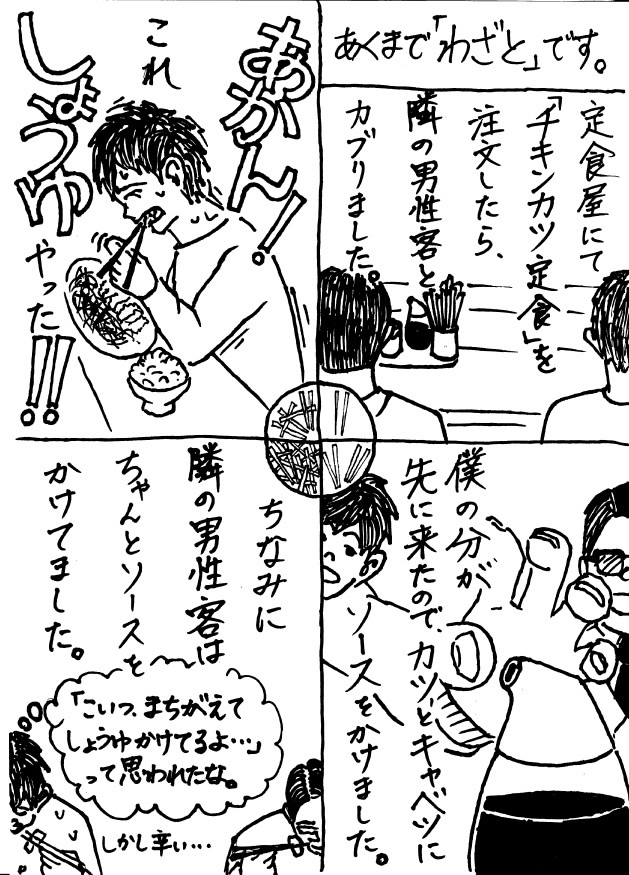 あくまで「わざと」です。
定食屋にて
「チキンカツ定食」を
注文したら、
隣の男性客と
カブりました。
僕の分が
先に来たので、カツとキャベツに
ソースをかけました。
あかん!
これ
しょうゆ
やった!!
ちなみに
隣の男性客は
ちゃんとソースを
かけてました。
「こいつ、まちがえて
しょうゆかけてるよ…」
って思われたな。
しかし辛い…